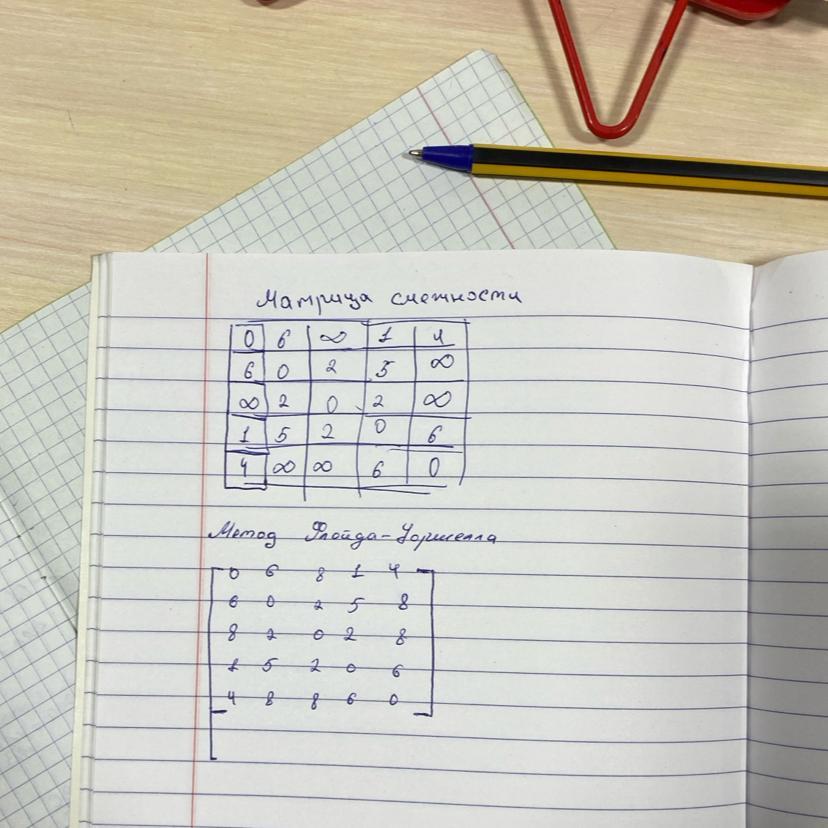 Матрица смежности
0 6 ∞ 1 4
6 0 2 5 ∞
∞ 2 0 2 ∞
1 5 2 0 6
4 ∞ ∞ 6 0
Метод Флойда-Уоршелла
0 6 8 1 4
6 0 2 5 8
8 2 0 2 8
1 5 2 0 6
4 8 8 6 0